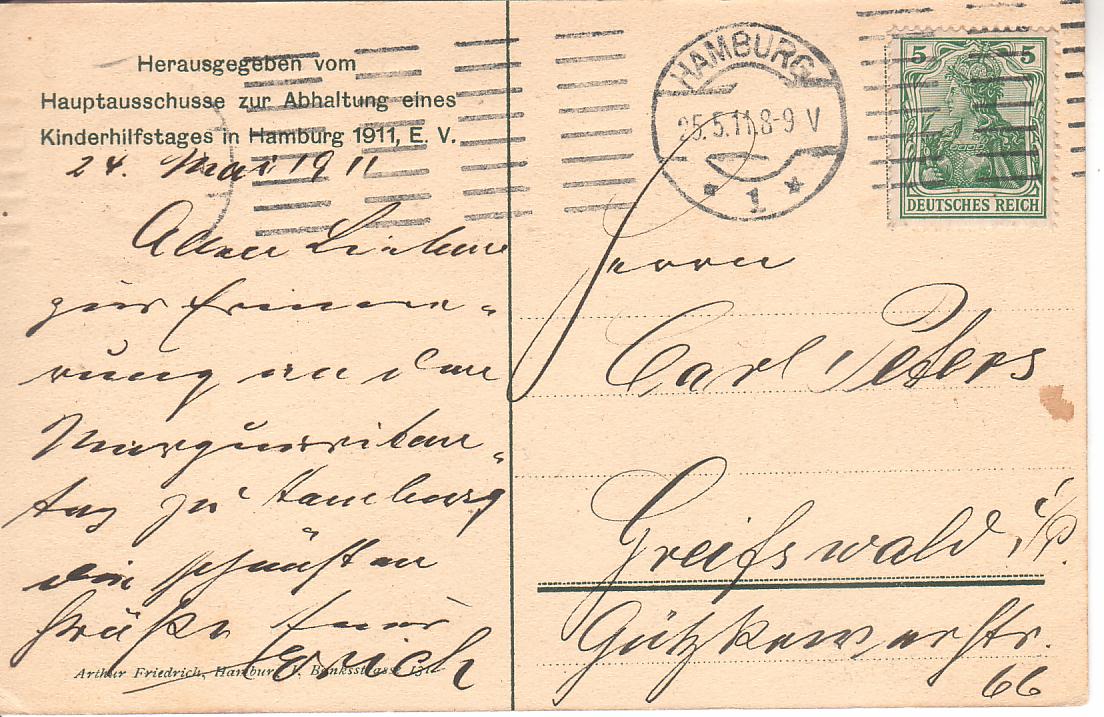 Herausgegeben vom
Hauptausschusse zur Abhaltung eines
Kinderhilfstages in Hamburg 1911, E. V.
24. Mai 1911
Allen Lieben
zur Erinne-
rung an den
Margueriten-
tag zu Hamburg
die schönsten
Grüße Euer
Erich
Arthur Friedrich, Hamburg
HAMBURG
25.5.11.8-9 V
* 1 *
5 5
DEUTSCHES REICH
Herrn
Carl Peters
Greifswald i/P.
Gützkowerstr.
66